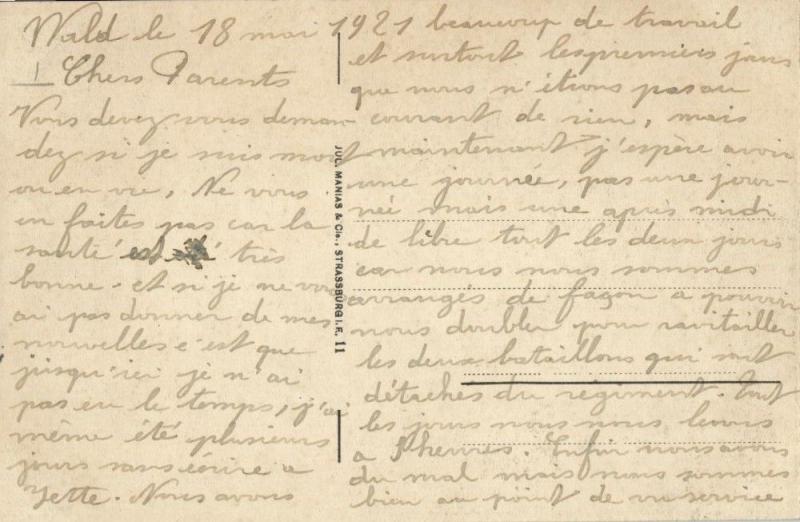 Wald le 18 mai 1921
Chers Parents
Vous devez vous deman-
dez si je suis mort
ou en vie, Ne vous
en faites pas car la
santé est très
bonne. et si je ne vous
ai pas donner de mes
nouvelles c'est que
jusqu'ici je n'ai
pas eu le temps, j'ai
même été plusieurs
jours sans écrire a
Yette. Nous avons
beaucoup de travail
et surtout les premiers jours
que nous n'étions pas au
courant de rien, mais
maintenant j'espère avoir
une journée, pas une jour-
née mais une après midi
de libre tout les deux jours
car nous nous sommes
arrangés de façon a pouvoir
nous doubler pour ravitailler
les deux bataillons qui sont
détachés du régiment. Tout
les jours nous nous levons
a heures. Enfin nous avons
du mal mais nous sommes
bien au point de vu service
JUL. MANIAS & Cie., STRASSBURG I. E. 11